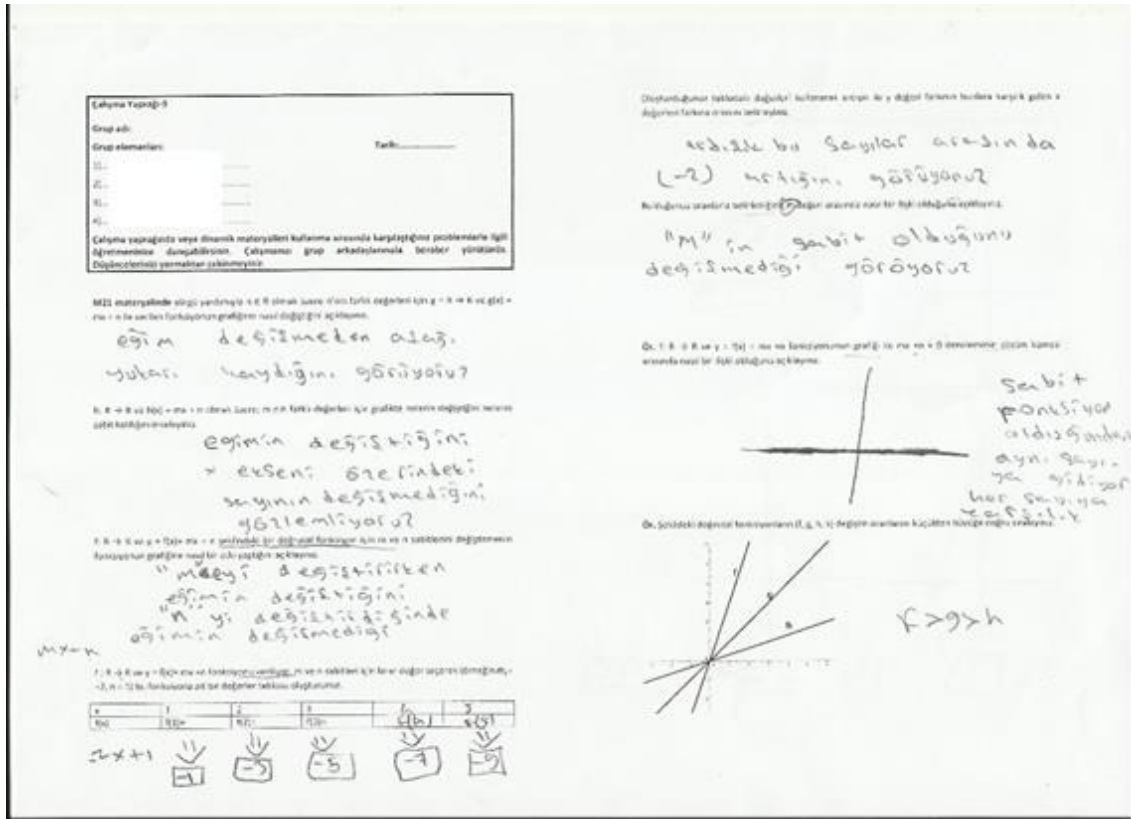 Çalışma Yaprağı-9
Grup adı:
Grup elemanları: Tarih:
1)...
2)...
3)...
4)...
Çalışma yaprağında veya dinamik materyalleri kullanma sırasında karşılaştığınız problemlerle ilgili
öğretmeninize danışabilirsiniz. Çalışmanızı grup arkadaşlarınızla beraber yürütünüz.
Düşüncelerinizi yazmaktan çekinmeyiniz.
M21 materyalinde sürgü yardımıyla n ∈ R olmak üzere n'nin farklı değerleri için g = R → R ve g(x) =
mx + n ile verilen fonksiyonun grafiğinin nasıl değiştiğini açıklayınız.
eğim değişmeden aşağı
yukarı kaydığını görüyoruz
h: R → R ve h(x) = mx + n olmak üzere, m nin farklı değerleri için grafikte nelerin değiştiğini nelerin
sabit kaldığını inceleyiniz.
eğimin değiştiğini
x ekseni üzerindeki
sayının değişmediğini
gözlemliyoruz
f: R → R ve y = f(x) = mx + n şeklindeki bir doğrusal fonksiyon için m ve n sabitlerini değiştirmenin
fonksiyonun grafiğine nasıl bir etki yaptığını açıklayınız.
"m"yi değiştirirken
eğimin değiştiğini
"n" yi değiştirdiğinde
eğimin değişmediği
mx+n
f: R → R ve y = f(x) = mx + n fonksiyonu veriliyor. m ve n sabitleri için birer değer seçerek (örneğin m =
-2, n = 1) bu fonksiyona ait bir değerler tablosu oluşturunuz.
x 1 2 3 4 5
f(x) f(1)= f(2)= f(3)= f(4) f(5)
-2x+1 -1 -3 -5 -7 -9
Oluşturduğunuz tablodaki değerleri kullanarak ardışık iki y değeri farkının bunlara karşılık gelen x
değerleri farkına oranını belirleyiniz.
ardışık bu sayılar arasında
(-2) artığını görüyoruz
Bulduğunuz oranlarla belirlediğiniz m değeri arasında nasıl bir ilişki olduğunu açıklayınız.
"M" in sabit olduğunu
değişmediği görüyoruz
Ör. f: R → R ve y = f(x) = mx+n fonksiyonunun grafiği ile mx+n = 0 denkleminin çözüm kümesi
arasında nasıl bir ilişki olduğunu açıklayınız.
Sabit
fonksiyon
olduğundan
aynı sayı
ya gidiyor
her sayıya
Ör. Şekildeki doğrusal fonksiyonların (f, g, h, x) değişim oranlarını küçükten büyüğe doğru sıralayınız.
f
g
f>g>h